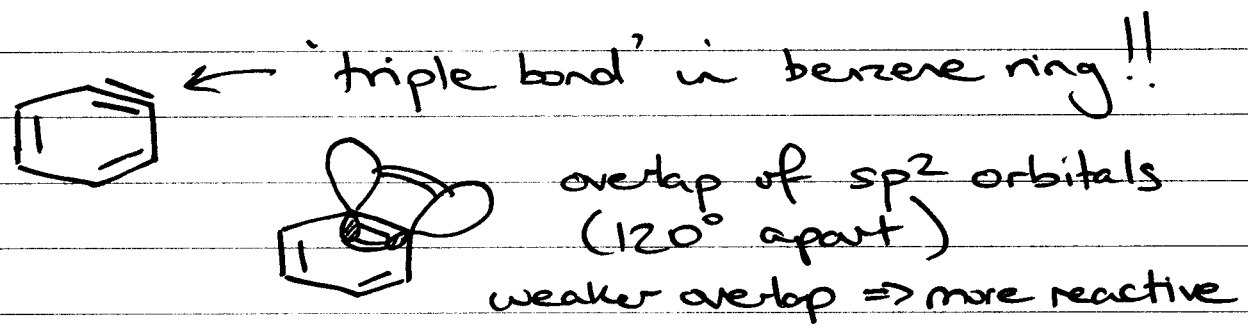 ← 'triple bond' in benzene ring!!
overlap of sp² orbitals
(120° apart)
weaker overlap => more reactive